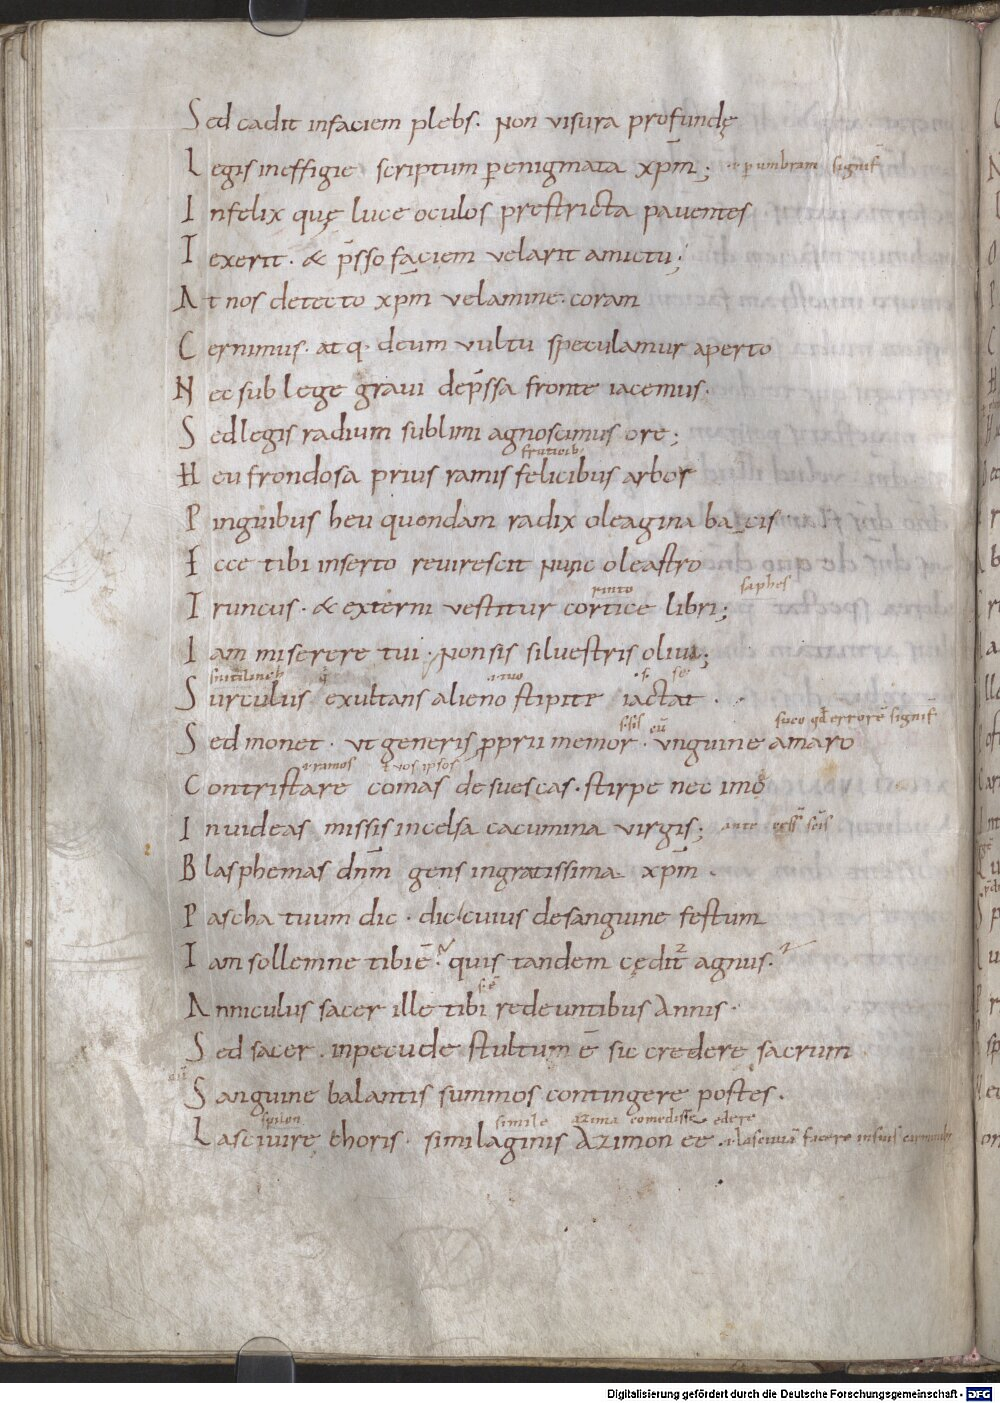 Sed cadit infaciem plebs. non visura profundę
Legis ineffigie scriptum p̄ enigmata xp̄m; .i. p̄ umbram signif̄
Infelix quę luce oculos prestricta paventes
Texerit. & p̄sso faciem velarit amictu;
At nos detecto xp̄m velamine. coram
Cernimus. atq. deum vultu speculamur aperto
Nec sub lege gravi dep̄ssa fronte iacemus.
Sed legis radium sublimi agnoscimus ore;
fructuib;
Heu frondosa prius ramis felicibus arbor
Pinguibus heu quondam radix oleagina bacis
Ecce tibi inserto revirescit nunc oleastro
Truncus. & externi vestitur cortice libri;
Iam miserere tui. non sis silvestris olivę;
.i. tuo
Surculus exultans alieno stipite iactat.
suco qd̄ errorē signif̄
Sed monet. ut generis p̄prii memor. unguine amaro
.i. ramos ł vos ipsos
Contristare comas desuescas. stirpe nec imo
Invideas missis incelsa cacumina virgis;
Blasphemas dn̄m gens ingratissima xp̄m.
Pascha tuum dic. dic cuius desanguine festum
Iam sollemne tibi ē. quis tandem cędit͛ agnus.
s. ē
Anniculus sacer ille tibi redeuntibus Annis.
Sed sacer. inpecude stultum ē sic credere sacrum
Sanguine balantis summos contingere postes.
simile azima comedisse edere
Lascivire choris. similaginis Azimon ee. .i. lasciviā facere
Digitalisierung gefördert durch die Deutsche Forschungsgemeinschaft - DFG